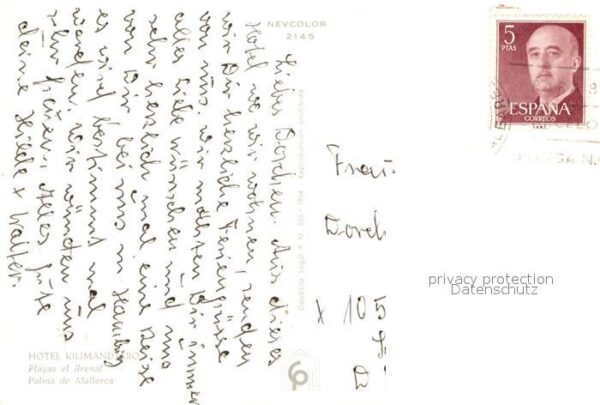 NEVCOLOR
2145
Liebes Dorchen. Aus dieses
Hotel wo wir wohnen, senden
wir Dir herzliche Feriengrüsse
von uns. Wir möchten Dir immer
alles Liebe wünschen und uns
sehr herzlich mal eine Reise
von Dir bei uns in Hamburg
es wird bestimmt mal
werden. Wir würden uns
sehr freuen. Alles Gute
deine Hilde + Walter.
Depósito Legal P. M. 535-1964 Reproducción prohibida
HOTEL KILIMANDJARO
Playas el Arenal
Palma de Mallorca
5
PTAS
ESPAÑA
CORREOS
Frau
Dorch
x 105
D
privacy protection
Datenschutz